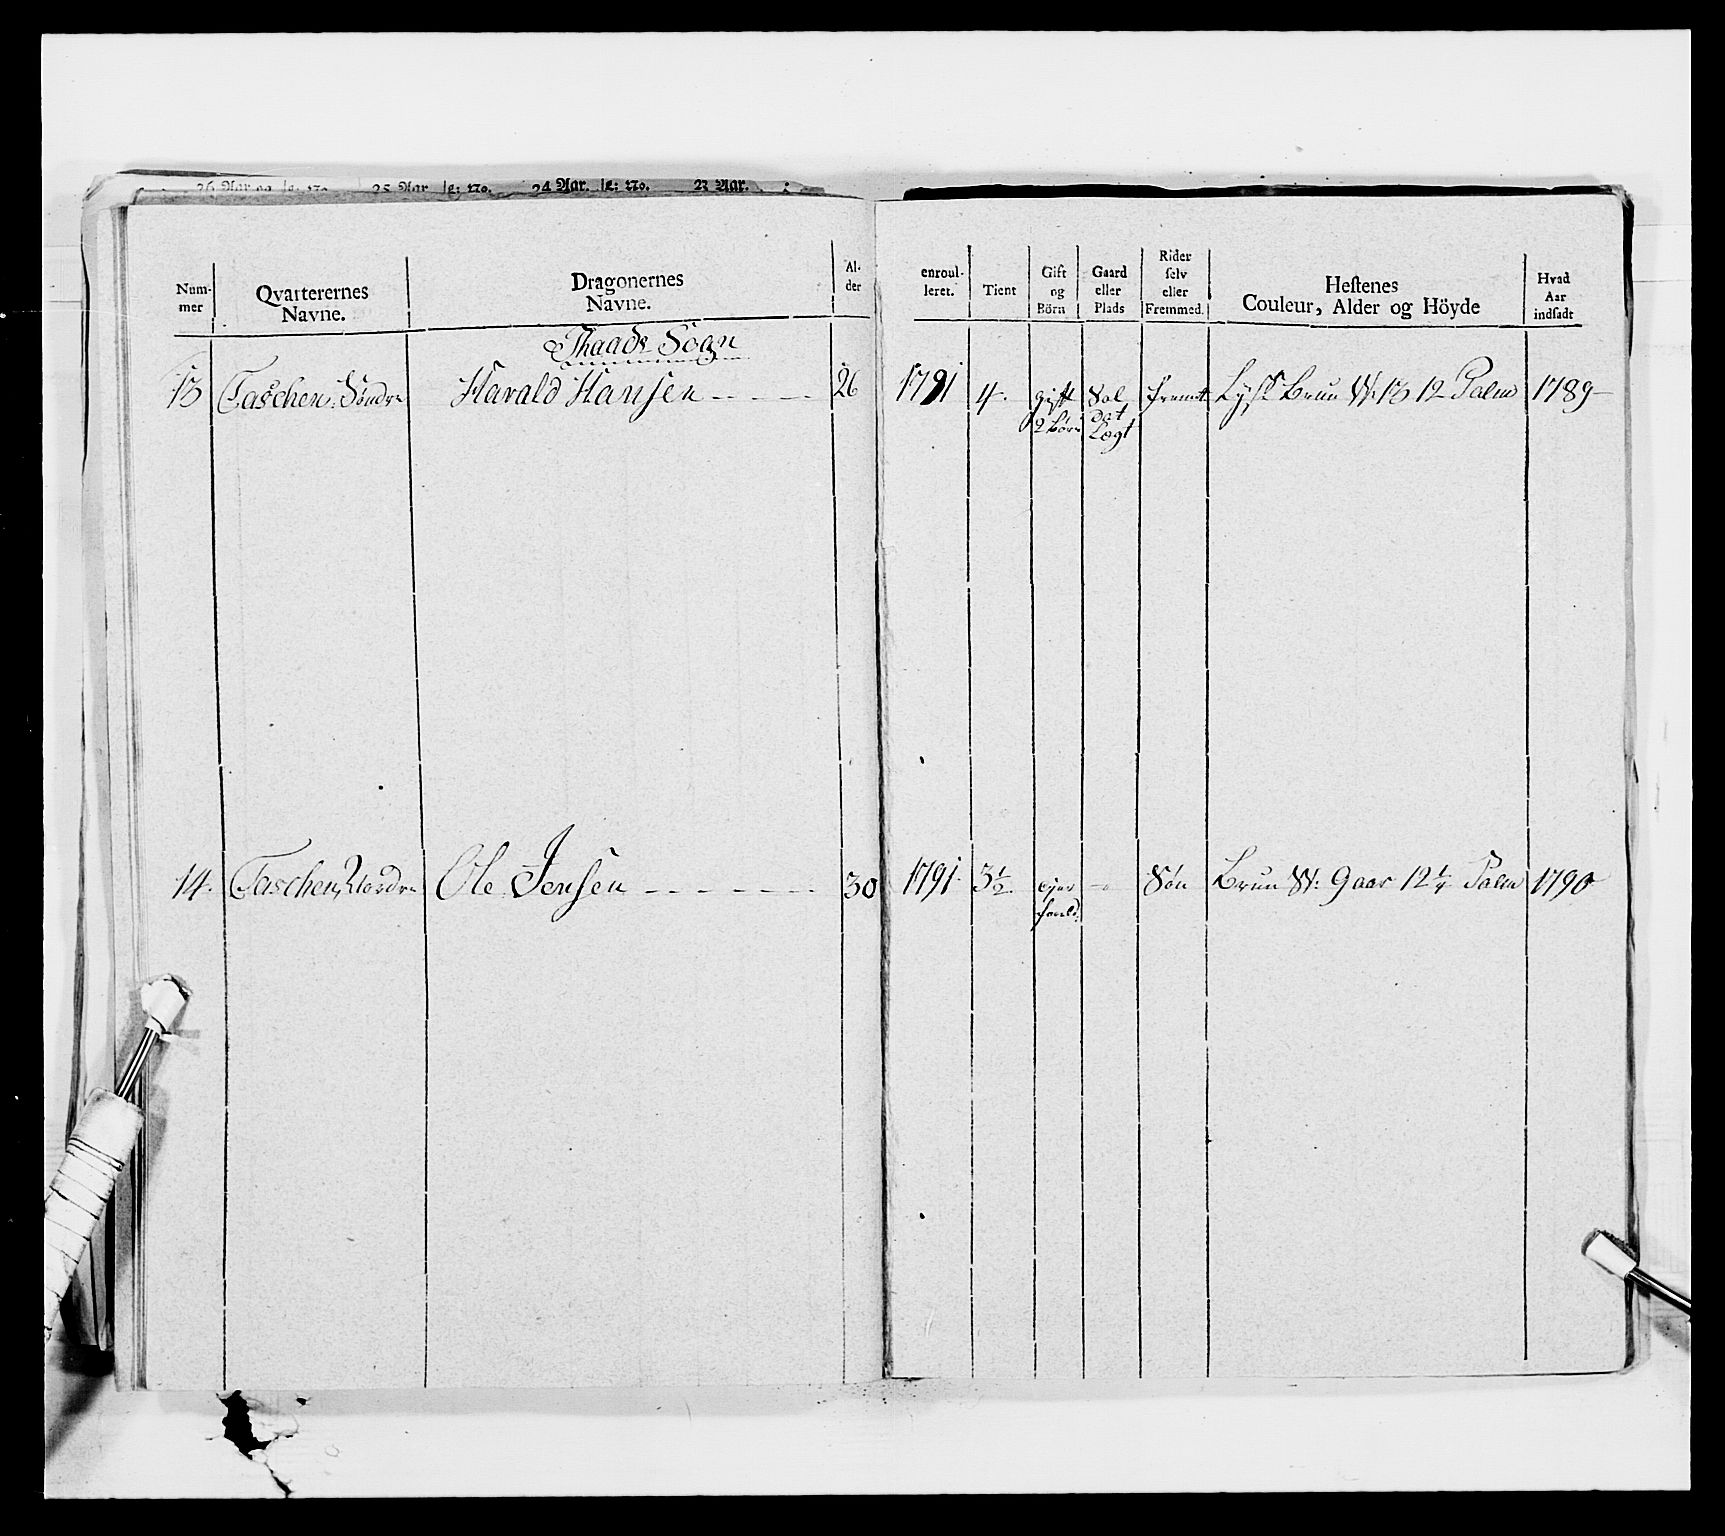 26 Aar og No. 25 Aar le: No. 24 Aar. le: No. 23 Aar.
Num-
mer
Qvarterernes
Navne.
Dragonernes
Navne.
Al-
der
enroul-
leret.
Tient
Gift
og
Börn
Gaard
eller
Plads
Rider
selv
eller
Fremmed.
Hestenes
Couleur, Alder og Höyde
Hvad
Aar
indsadt
Sogn
13 Taschen Søndre Harald Hansen 26 1791 4. gift Sol fremt Lyss Brun W: 13 12 Palm 1789
2 børn dat
Lægt
14. Taschen Nordre Ole Jensen 30 1791 3½ Søn Brun W: 9 aar 12¼ Palm 1790